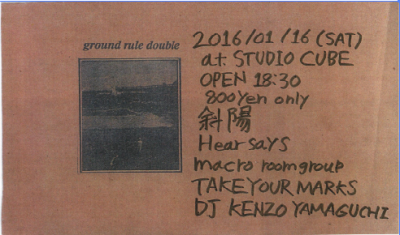 ground rule double
2016/01/16 (SAT)
at STUDIO CUBE
OPEN 18:30
800Yen only
斜陽
Hearsays
macro roomgroup
TAKE YOUR MARKS
DJ KENZO YAMAGUCHI